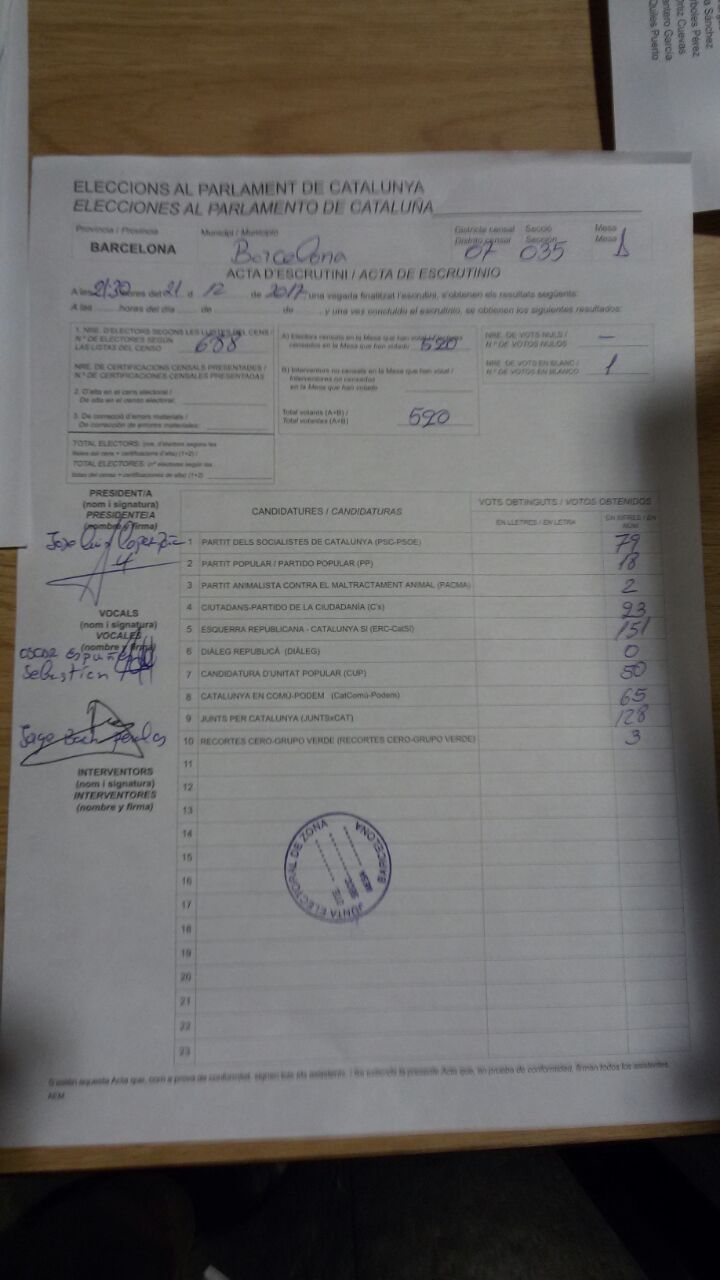 a Sánchez
rboles Pérez
Ortiz Cuevas
antero García
Quiles Puerto
ELECCIONS AL PARLAMENT DE CATALUNYA
ELECCIONES AL PARLAMENTO DE CATALUÑA
Província / Provincia Municipi / Municipio Districte censal Secció Mesa
Distrito censal Sección Mesa
BARCELONA Barcelona 07 035
ACTA D'ESCRUTINI / ACTA DE ESCRUTINIO
A les 21:30 hores del 21 d 12 de 2017, una vegada finalitzat l'escrutini, s'obtenen els resultats següents:
A las horas del día de de y una vez concluido el escrutinio, se obtienen los siguientes resultados:
1. NRE. D'ELECTORS SEGONS LES LLISTES DEL CENS /
N.º DE ELECTORES SEGÚN
LAS LISTAS DEL CENSO 688
NRE. DE CERTIFICACIONS CENSALS PRESENTADES /
N.º DE CERTIFICACIONES CENSALES PRESENTADAS
2. D'alta en el cens electoral /
De alta en el censo electoral:
3. De correcció d'errors materials /
De corrección de errores materiales:
TOTAL ELECTORS: (nre. d'electors segons les
llistes del cens + certificacions d'alta) (1+2) /
TOTAL ELECTORES: (nº electores según las
listas del censo + certificaciones de alta) (1+2)
A) Electors censats en la Mesa que han votat / Electores
censados en la Mesa que han votado 590
B) Interventors no censats en la Mesa que han votat /
Interventores no censados
en la Mesa que han votado
Total votants (A+B) /
Total votantes (A+B) 590
NRE. DE VOTS NULS /
N.º DE VOTOS NULOS —
NRE. DE VOTS EN BLANC /
N.º DE VOTOS EN BLANCO 1
PRESIDENT/A
(nom i signatura)
PRESIDENTE/A
(nombre y firma)
VOCALS
(nom i signatura)
VOCALES
(nombre y firma)
OSCAR
Sebastian
INTERVENTORS
(nom i signatura)
INTERVENTORES
(nombre y firma)
CANDIDATURES / CANDIDATURAS VOTS OBTINGUTS / VOTOS OBTENIDOS
EN LLETRES / EN LETRA EN XIFRES / EN
NÚM.
1 PARTIT DELS SOCIALISTES DE CATALUNYA (PSC-PSOE) 79
2 PARTIT POPULAR / PARTIDO POPULAR (PP) 18
3 PARTIT ANIMALISTA CONTRA EL MALTRACTAMENT ANIMAL (PACMA) 2
4 CIUTADANS-PARTIDO DE LA CIUDADANÍA (C's) 93
5 ESQUERRA REPUBLICANA - CATALUNYA SÍ (ERC-CatSí) 151
6 DIÀLEG REPUBLICÀ (DIÀLEG) 0
7 CANDIDATURA D'UNITAT POPULAR (CUP) 50
8 CATALUNYA EN COMÚ-PODEM (CatComú-Podem) 65
9 JUNTS PER CATALUNYA (JUNTSxCAT) 128
10 RECORTES CERO-GRUPO VERDE (RECORTES CERO-GRUPO VERDE) 3
11
12
13
14
15
16
17
18
19
20
21
22
23
JUNTA ELECTORAL DE ZONA
BARCELONA
DTE.
SECC.
MESA